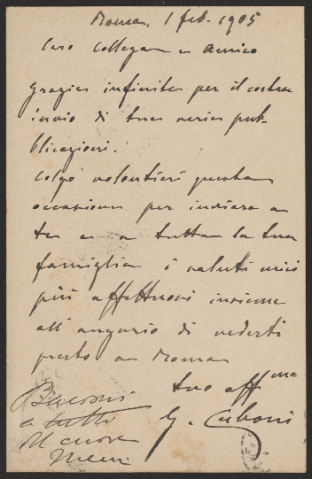 Roma, 1 feb. 1905
Caro Collega e Amico
Grazie infinite per il
invio di tue varie pub-
blicazioni.
Colgo volontieri questa
occasione per inviare a
te e a tutta la tua
famiglia i saluti miei
più affettuosi insieme
all'augurio di vederti
presto a Roma
tuo aff.mo
G. Cuboni
a tutti